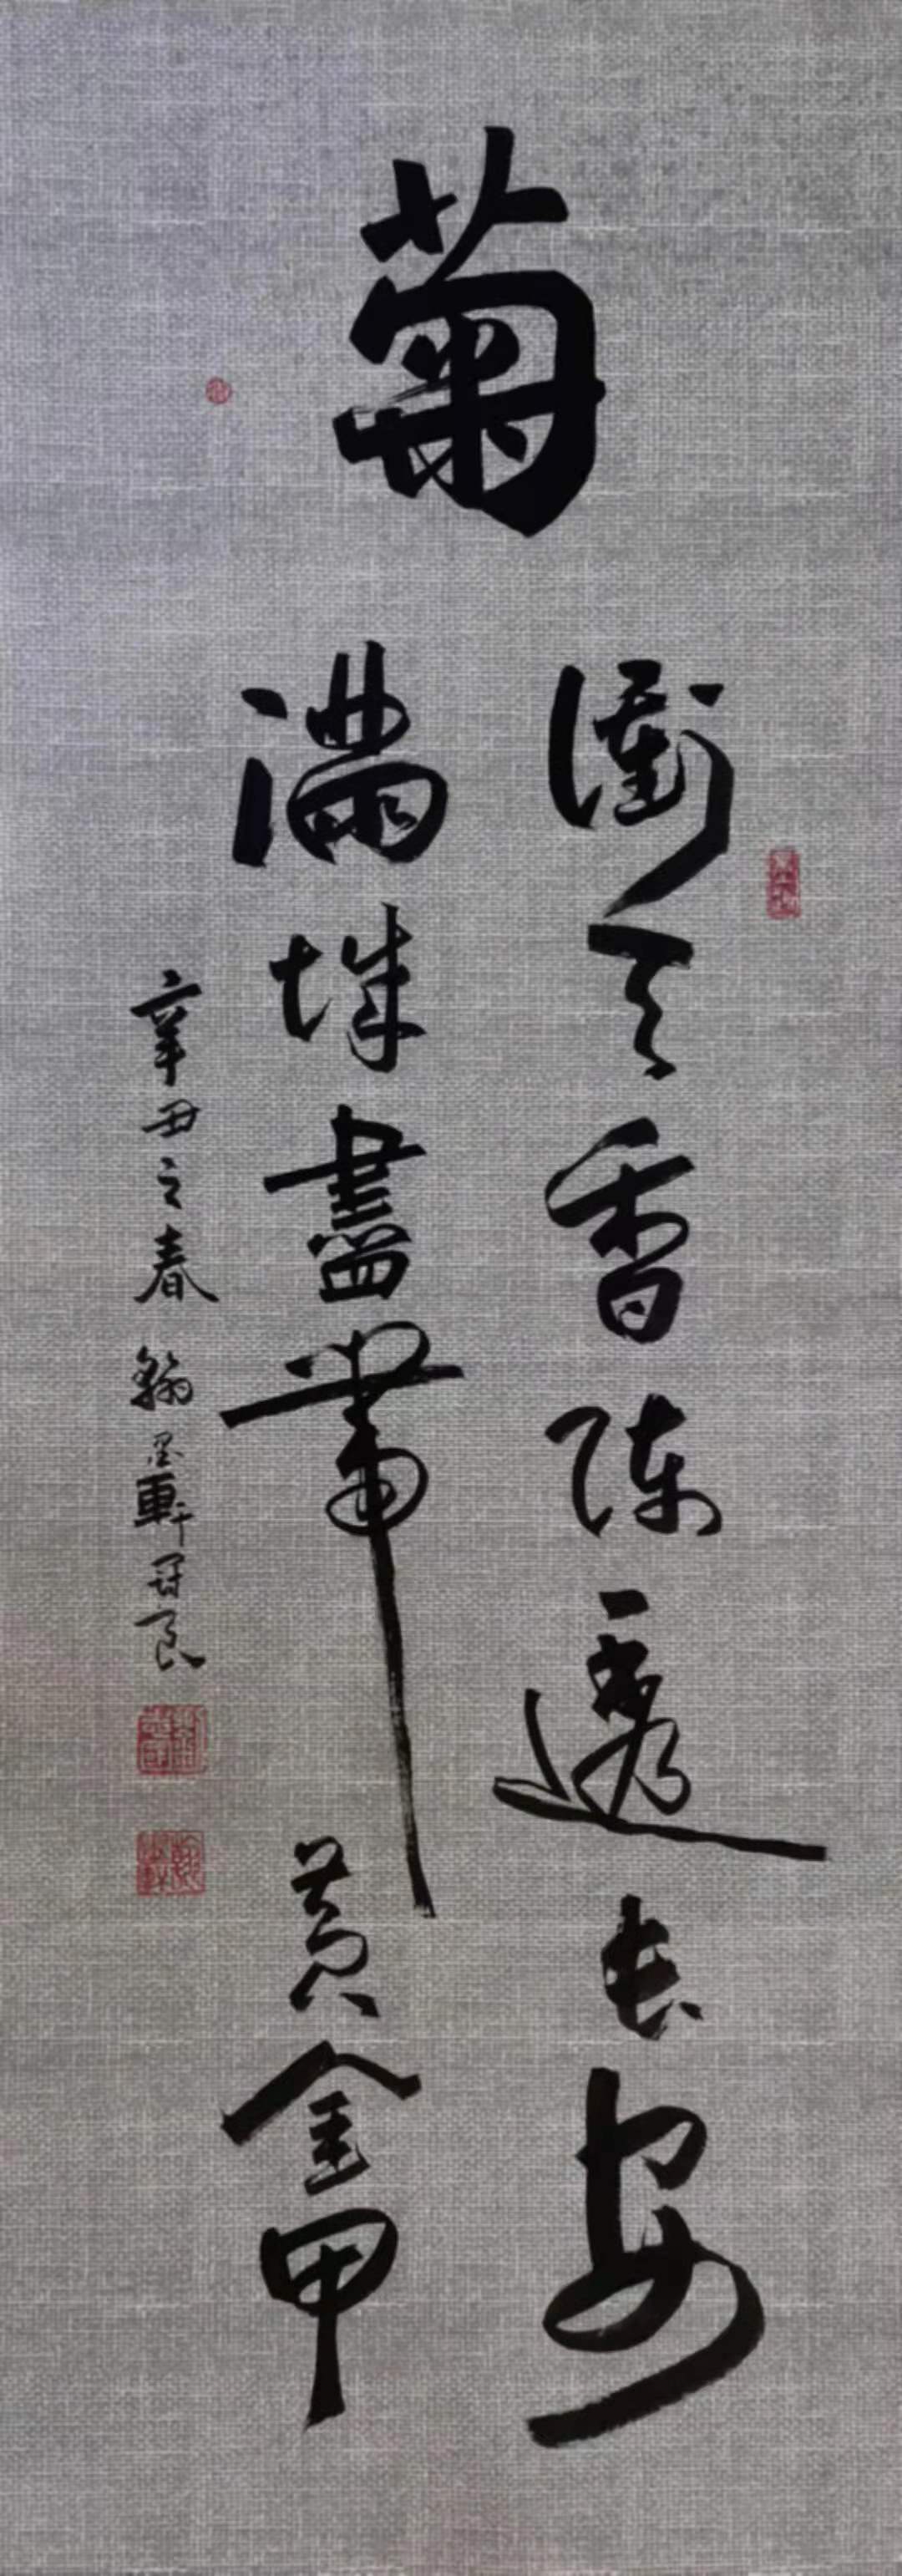 菊
衝天香陣透長安
满城盡帶黄金甲
辛丑之春翰墨軒